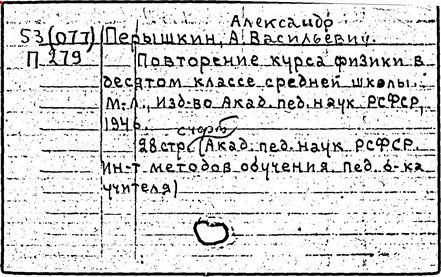 Александр
53(077) Перышкин, А. Васильевич.
П 279 Повторение курса физики в
десятом классе средней школы.
М.-Л., Изд-во Акад. пед. наук РСФСР,
1946.
с черт.
28 стр. (Акад. пед. наук РСФСР.
Ин-т методов обучения. Пед. б-ка
учителя)